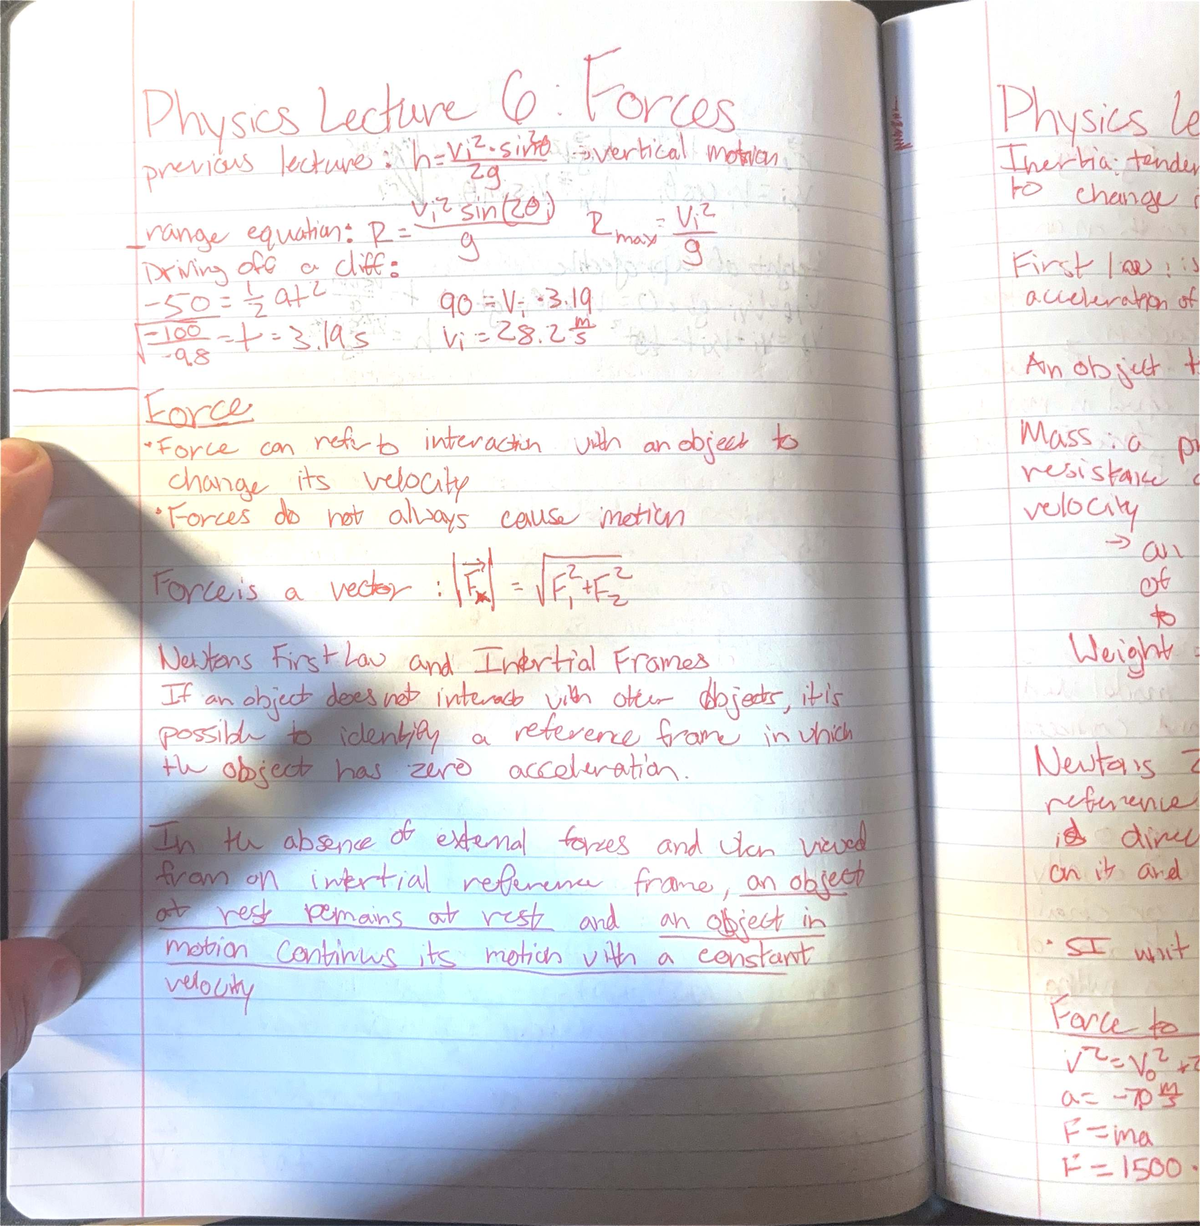 Physics Lecture 6: Forces
previous lecture: h = Vi²·sin²θ / 2g → vertical motion
range equation: R = Vi² sin(2θi) / g    Rmax = Vi² / g
Driving off a cliff:
-50 = ½at²    90 = Vi · 3.19
√(-100 / -9.8) = t = 3.19s    Vi = 28.2 m/s
Force
• Force can refer to interaction with an object to
change its velocity
• Forces do not always cause motion
Force is a vector : |F⃗| = √(F₁² + F₂²)
Newtons First Law and Inertial Frames
If an object does not interact with other objects, it is
possible to identify a reference frame in which
the object has zero acceleration.
In the absence of external forces and when viewed
from an inertial reference frame, an object
at rest remains at rest and an object in
motion continues its motion with a constant
velocity
Physics Le
Inertia: tenden
to change
First law: is
acceleration of
An object t
Mass: a pr
resistance
velocity
→ an
of
to
Weight =
Newtons 2
reference
is direc
on it and
• SI unit
Force to
V² = V₀² +2
a = -70 m/s
F = ma
F = 1500 ·